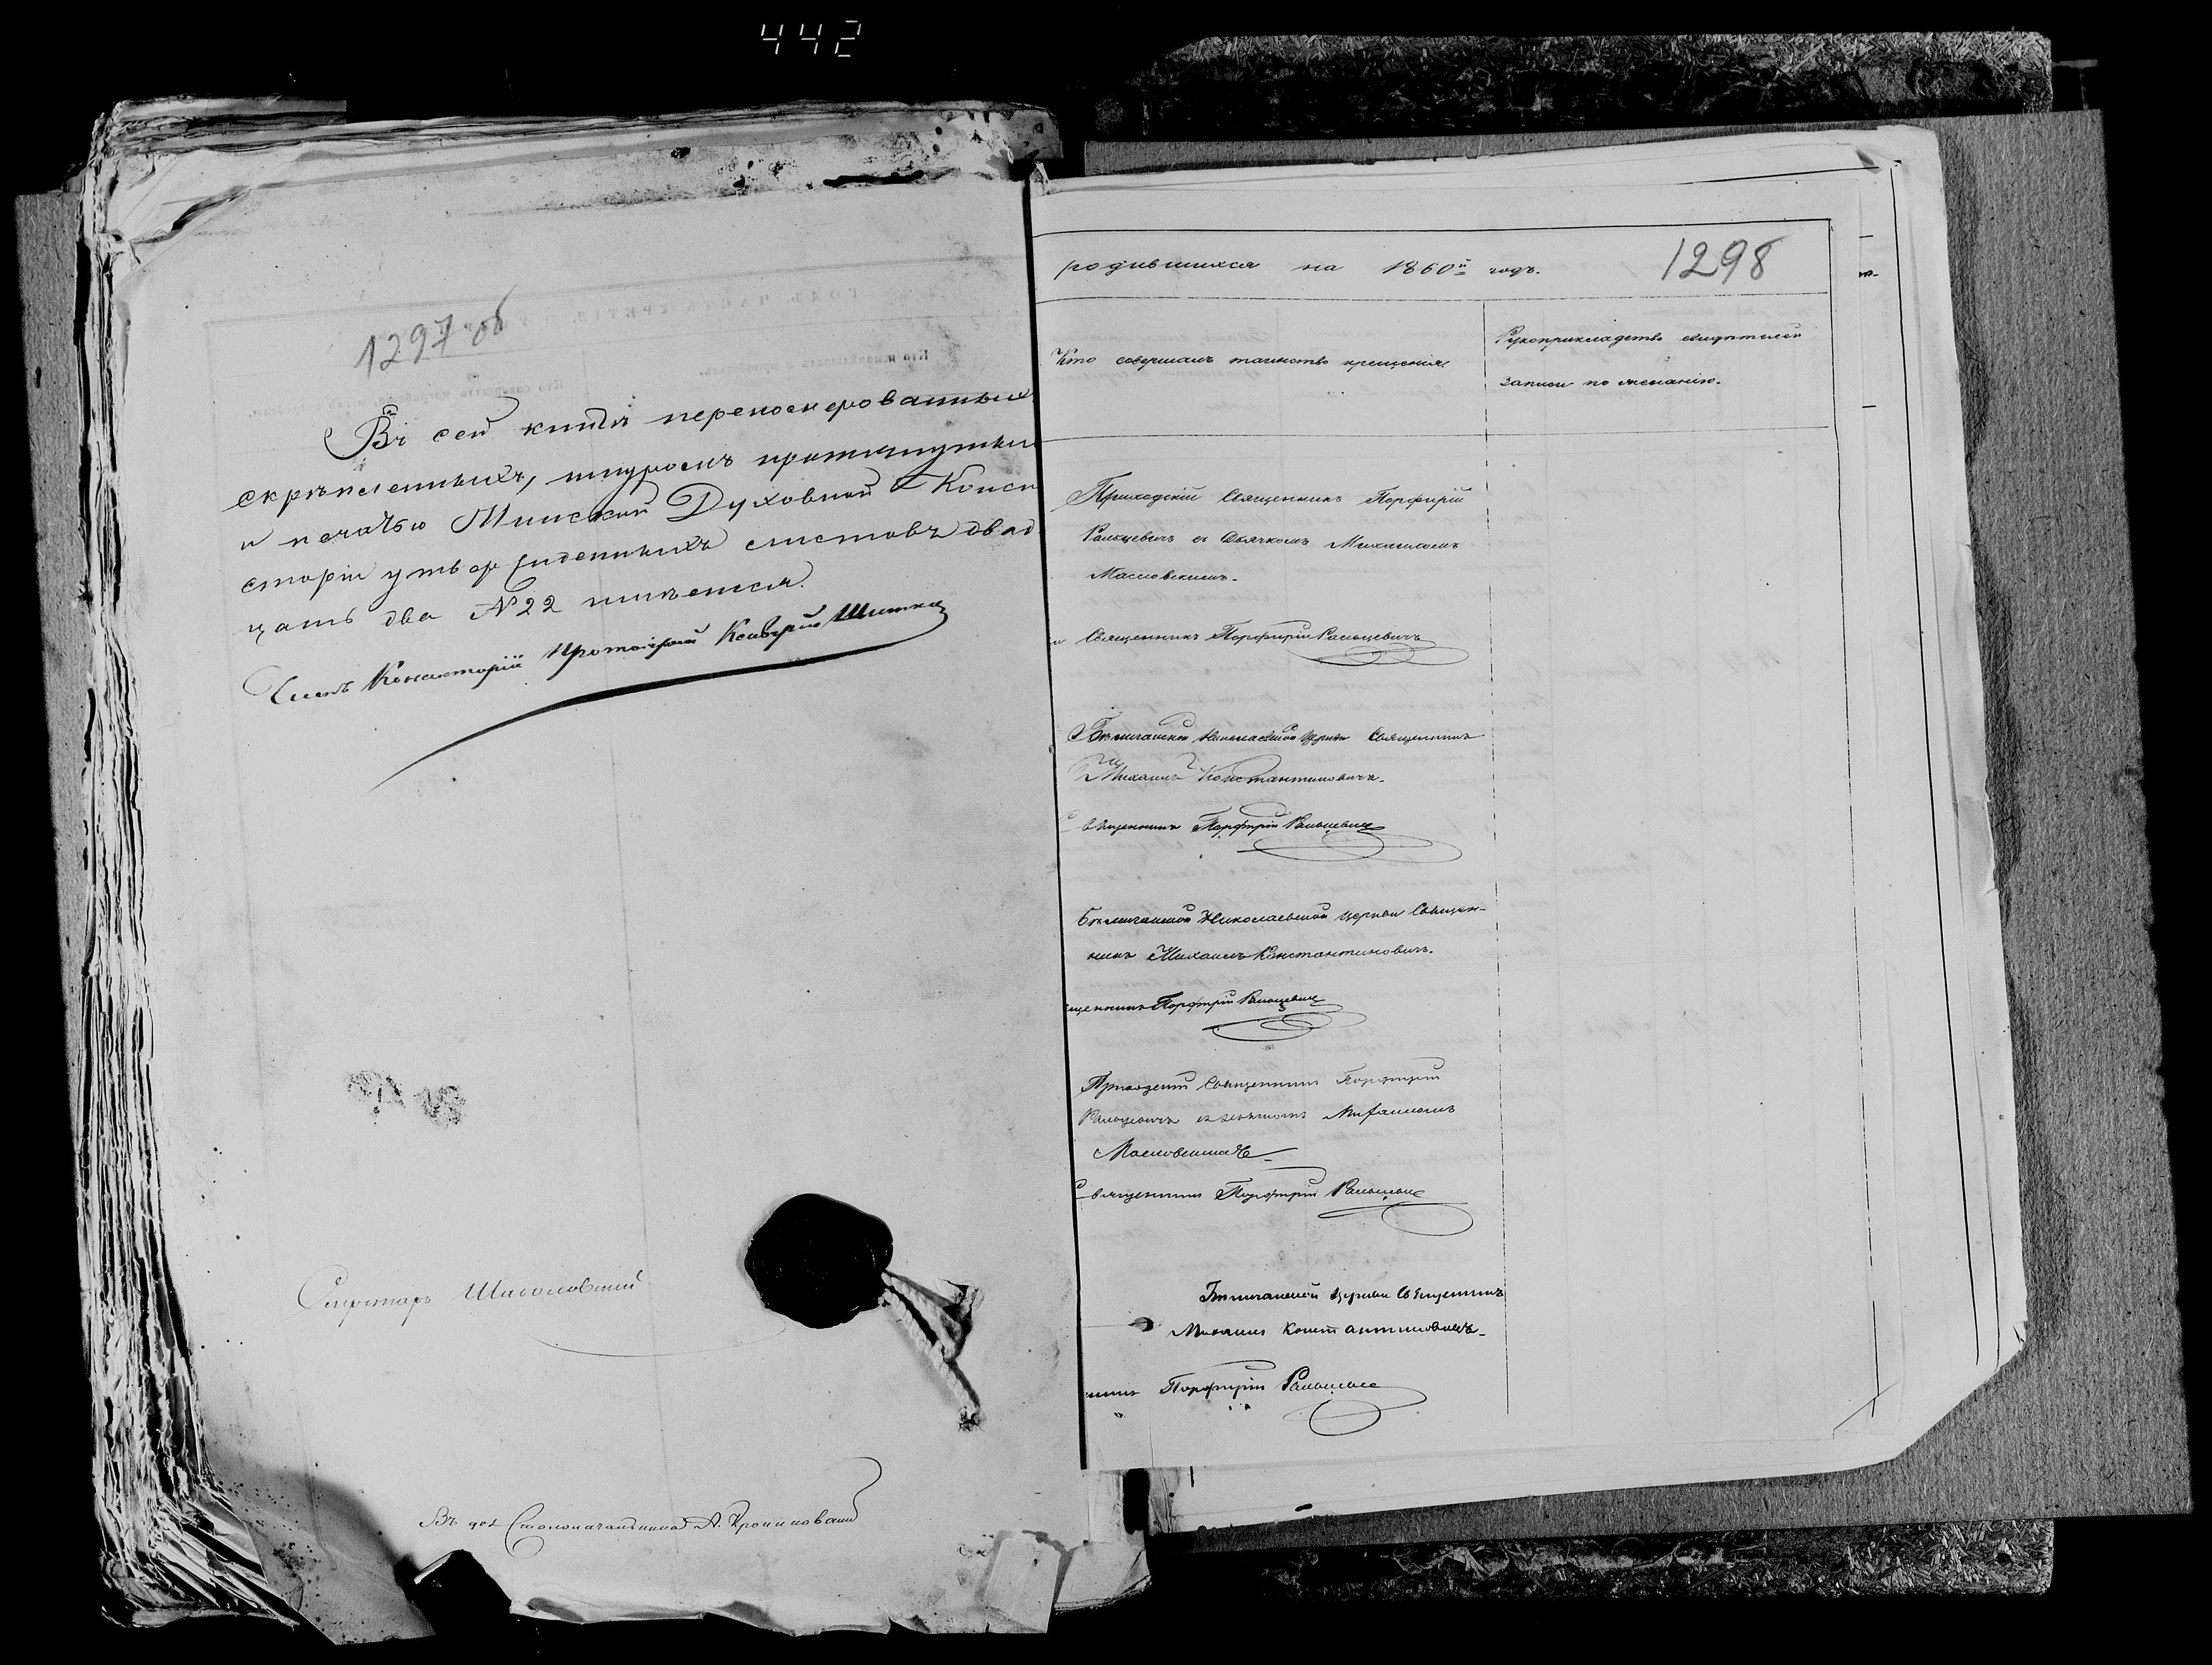 442
1297 об
Въ сей книгѣ перенумерованныхъ
скрѣпленныхъ, шнуромъ протянутыхъ
и печатью Минской Духовной Конси
сторіи утвержденныхъ листовъ двад
цать два №22 имѣется.
Членъ Консисторіи Протоіерей
Секретарь
Въ дол Столоначальника А.
1298
родившихся на 1860й годъ.
Кто совершалъ таинство крещенія.
Рукоприкладство свидѣтелей
записи по желанію.
Приходскій Священникъ Порфирій
Ральцевичъ съ Дьячкомъ Михаиломъ
Масловскимъ.
Священникъ Порфирій Ральцевичъ
Николаевской Церкви Священникъ
Михаилъ Константиновичъ.
Священникъ Порфирій Ральцевичъ
Николаевской Церкви Священ-
никъ Михаилъ Константиновичъ.
щенникъ Порфирій Ральцевичъ
Приходскій Священникъ Порфирій
Ральцевичъ съ дьячкомъ Михаиломъ
Масловскимъ
Священникъ Порфирій Ральцевичъ
Церкви Священникъ
Михаилъ Константиновичъ.
никъ Порфирій Ральцевичъ